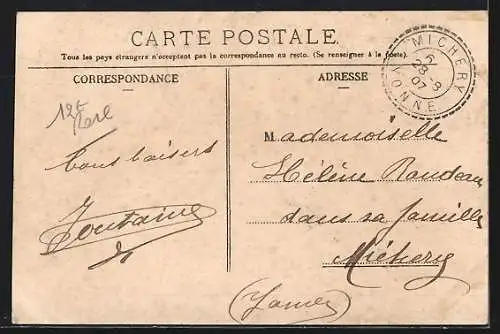 CARTE POSTALE
Tous les pays étrangers n'acceptent pas la correspondance au recto. (Se renseigner à la poste).
CORRESPONDANCE
ADRESSE
MICHERY
28 -9
07
YONNE
Bons baisers
Fontaine
Mademoiselle
Hélène
dans sa famille
Michery
(Yonne)